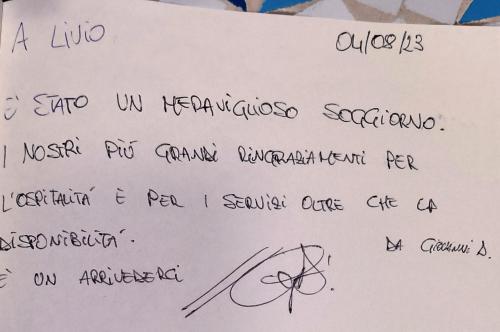 A LIVIO 04/08/23
È STATO UN MERAVIGLIOSO SOGGIORNO.
I NOSTRI PIÙ GRANDI RINGRAZIAMENTI PER
L'OSPITALITÀ È PER I SERVIZI OLTRE CHE LA
DISPONIBILITÀ.
DA GIOVANNI D.
È UN ARRIVEDERCI